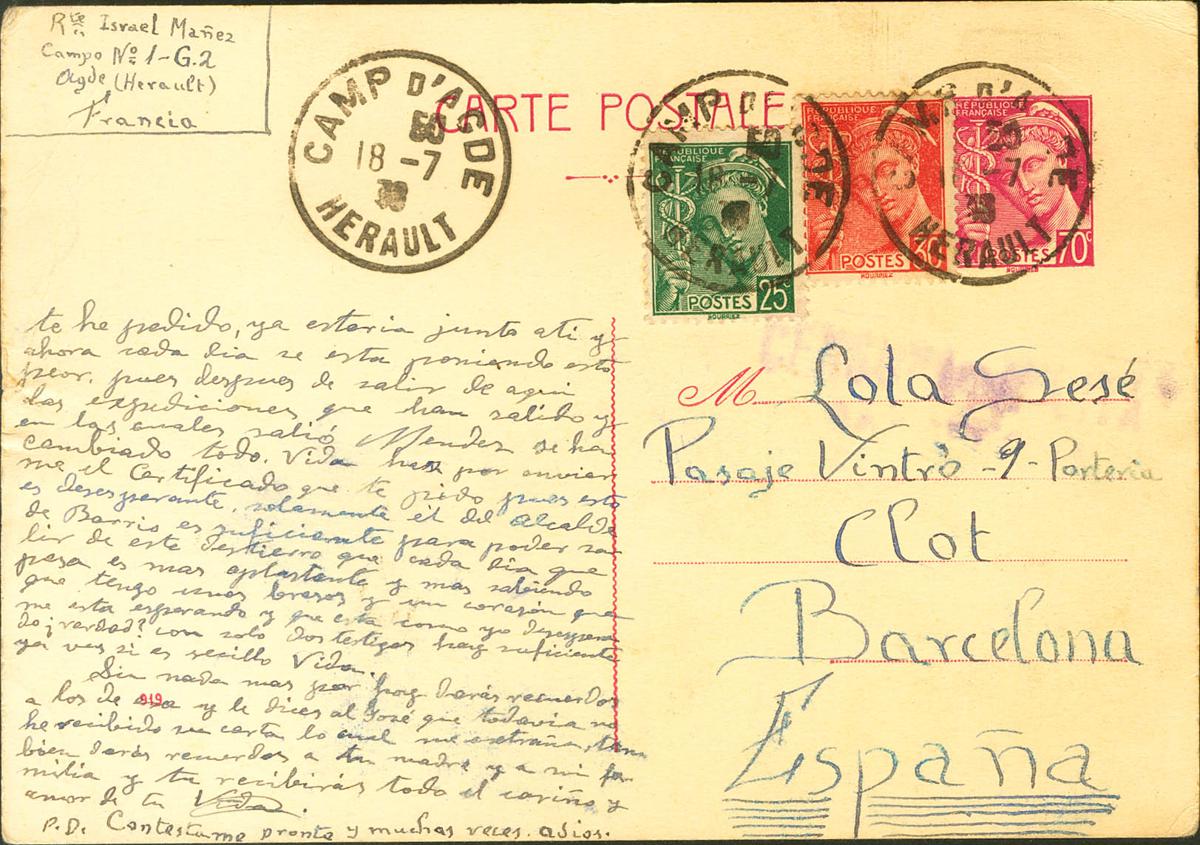 Rte Israel Mañez
Campo Nº 1-G.2
Agde (Herault)
Francia
CAMP D'AGDE
18 -7
HERAULT
CARTE POSTALE
CAMP D'AGDE
18 -7
HERAULT
D'A
-7
HERAULT
RÉPUBLIQUE
FRANÇAISE
POSTES 25c
RÉPUBLIQUE
FRANÇAISE
POSTES 30c
RÉPUBLIQUE
FRANÇAISE
POSTES 70c
te he pedido, ya estaria junto a ti y
ahora cada dia se esta poniendo esto
peor, pues despues de salir de aqui
las expediciones que han salido y
en las cuales salió Mendez se ha
cambiado todo. Vida haz por enviar
me el Certificado que te pido pues esto
es desesperante, solamente él del alcalde
de Barrio es suficiente para poder sa
lir de este destierro que cada dia que
pasa es mas aplastante y mas sabiendo
que tengo unos brazos y un corazón que
me esta esperando y que esta como yo desespera
do ¿verdad? con solo dos testigos hay suficiente
ya ves si es secillo Vida.
Sin nada mas por hoy darás recuerdos
a los de y le dices al José que todavia no
he recibido su carta lo cual me extraña, tam
bien darás recuerdos a tu madre y a mi fa
milia y tu recibirás todo el cariño y
amor de tu Vida.
P.D. Contestame pronto y muchas veces. adios.
919
M. Lola Sesé
Pasaje Vintró -9- Porteria
Clot
Barcelona
España